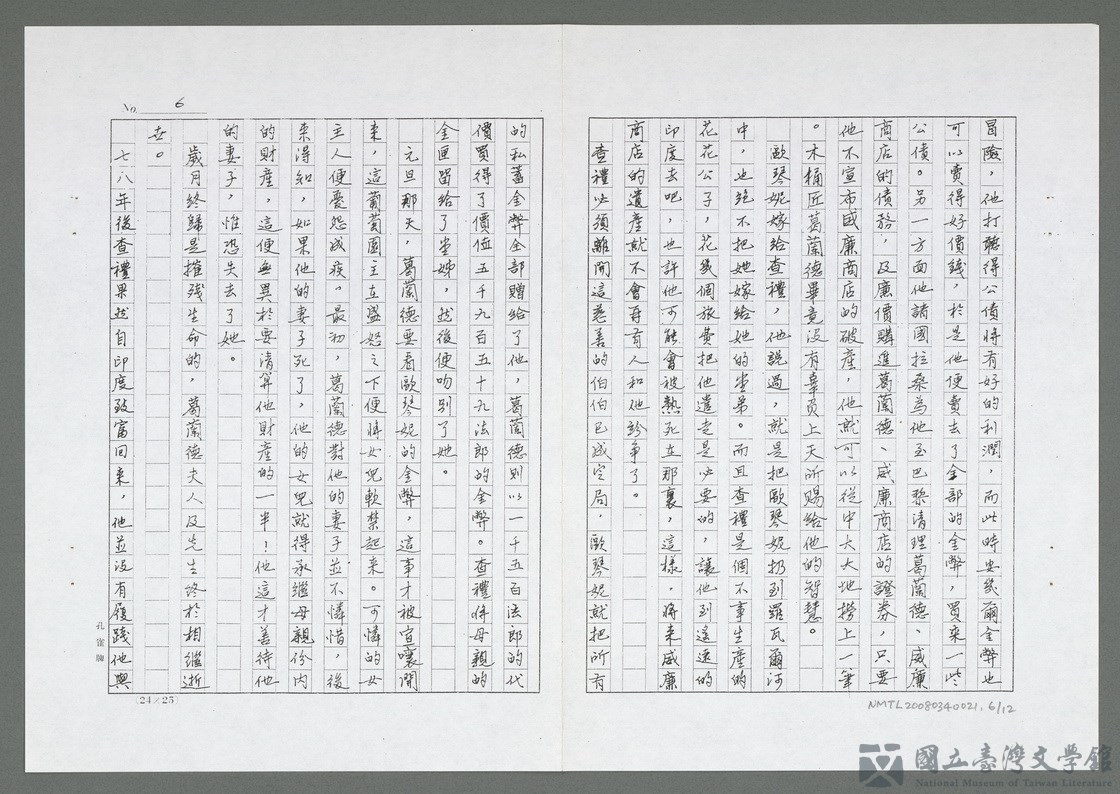 冒險，他打聽得公債將有好的利潤，而此時安幾爾金幣也
可以賣得好價錢，於是他便賣去了全部的金幣，買來一些
公債。另一方面他請國拉桑為他至巴黎清理葛蘭德、威廉
商店的債務，及廉價購進葛蘭德、威廉商店的證券，只要
他不宣布威廉商店的破產，他就可以從中大大地撈上一筆
。木桶匠葛蘭德畢竟沒有辜負上天所賜給他的智慧。
歐琴妮嫁給查禮，他說過，就是把歐琴妮扔到羅瓦爾河
中，也絕不把她嫁給她的堂弟。而且查禮是個不事生產的
花花公子，花幾個旅費把他遣走是必要的，讓他到遙遠的
印度去吧，也許他可能會被熱死在那裏，這樣，將來威廉
商店的遺產就不會再有人和他紛爭了。
查禮必須離開這慈善的伯伯已成定局，歐琴妮就把所有
No. 6
的私蓄金幣全部贈給了他，葛蘭德則以一千五百法郎的代
價買得了價值五千九百五十九法郎的金幣。查禮將母親的
金匣留給了堂姊，然後便吻別了她。
元旦那天，葛蘭德要看歐琴妮的金幣，這事才被宣嚷開
來，這葡萄園主在盛怒之下便將女兒軟禁起來。可憐的女
主人便憂怨成疾。最初，葛蘭德對他的妻子並不憐惜，後
來得知，如果他的妻子死了，他的女兒就得承繼母親份內
的財產，這便無異於要清算他財產的一半！他這才善待他
的妻子，惟恐失去了她。
歲月終歸是摧殘生命的，葛蘭德夫人及先生終於相繼逝
世。
七八年後查禮果然自印度致富回來，他並沒有履踐他與
孔雀牌
(24×25)
NMTL20080340021. 6/12
國立臺灣文學館
National Museum of Taiwan Literature